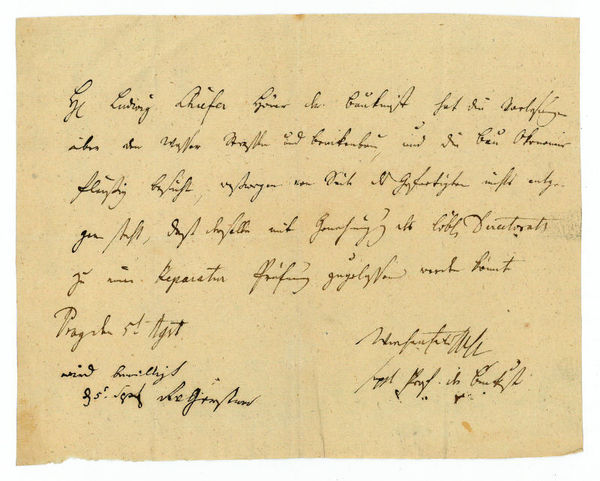 H. Ludwig Kiefer Hörer der Baukunst hat die Vorlesungen
über den Wasser Strassen und Brückenbau, und die Bau Ökonomie
fleißig besucht, weßwegen von Seite des Gefertigten nichts entge-
gen steht, daß derselbe mit Genehmigung des löbl. Directorats
zu einer Reparatur Prüfung zugelassen werden könnte
Prag den 5t
wird bewilligt
d 5. Gerstner
Prof. der Baukunst